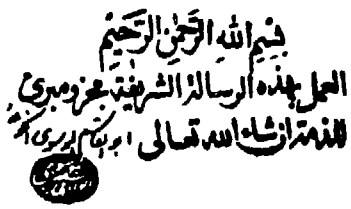 بِسْمِ اللهِ الرَّحْمٰنِ الرَّحِيْمِ
العمل بهذه الرسالة الشريفة مجز ومبرئ
للذمة ان شاء الله تعالى ابوالقاسم الموسوي الخوئي